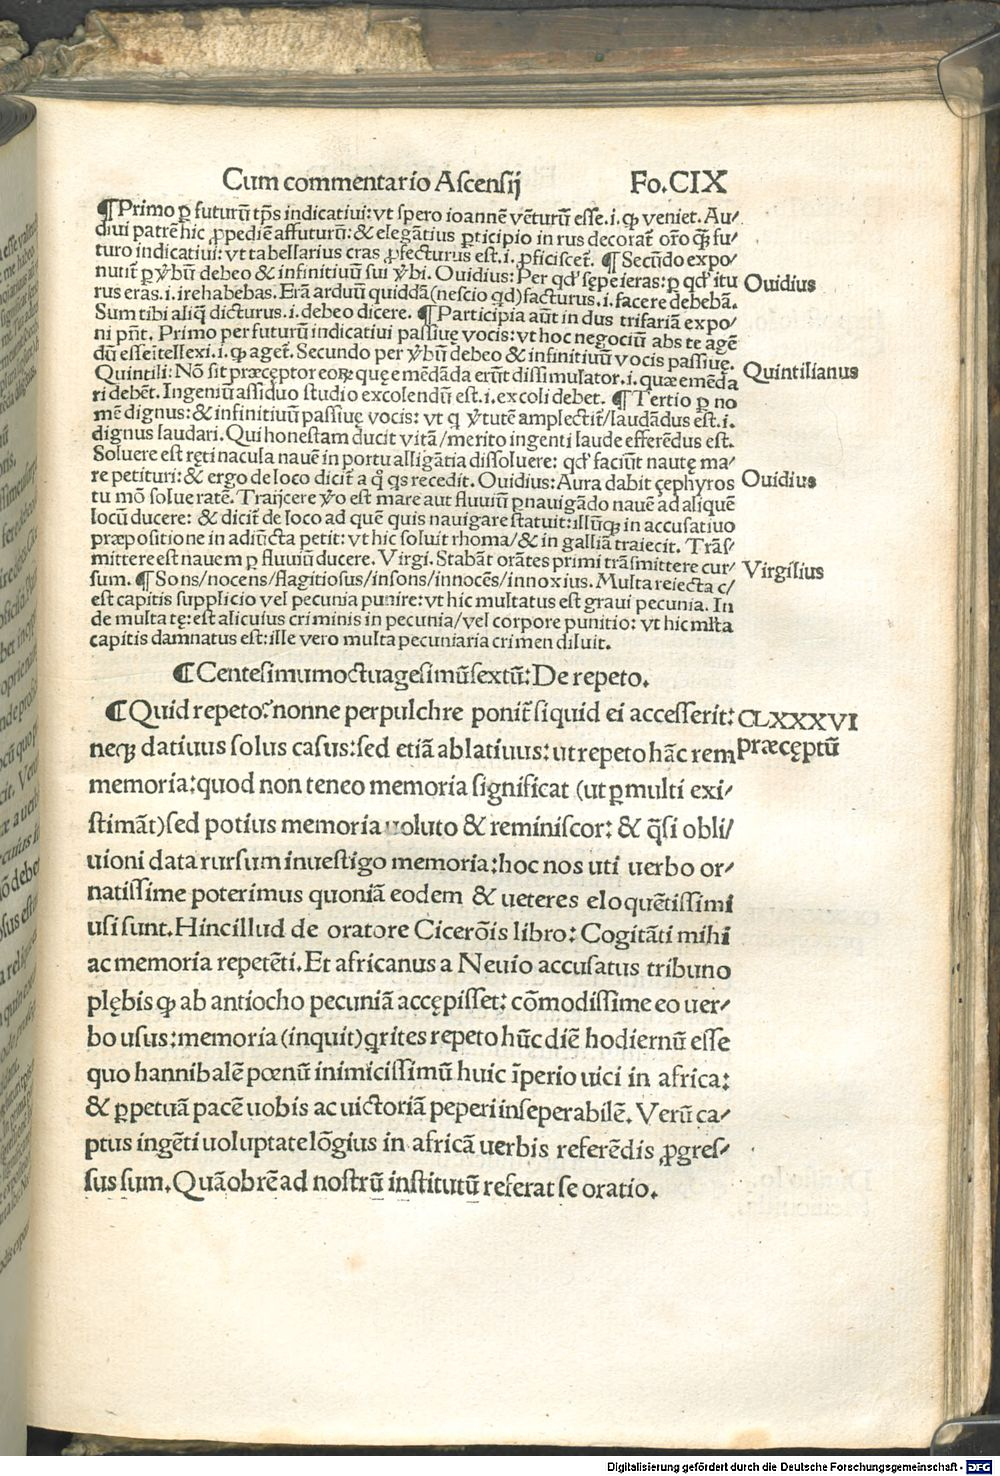 Cum commentario Ascensij Fo.CIX
¶Primo ꝑ futurū tp̄s indicatiui: vt spero ioannē vēturū esse.i. ꝙ veniet. Au/
diui patrē hic ꝓpediē affuturū: & elegātius ꝑticipio in rus decorat̄ orōꝙ̄ fu/
turo indicatiui: vt tabellarius cras ꝓfecturus est.i. ꝓficiscet̄. ¶Secūdo expo/
nunt̄ ꝑ v̓bū debeo & infinitiuū sui v̓bi. Ouidius: Per qd̓ sępe ieras: ꝑ qd̓ itu
rus eras.i. ire habebas. Erā arduū quiddā (nescio qd) facturus.i. facere debebā.
Sum tibi aliq̄ dicturus.i. debeo dicere. ¶Participia aūt in dus trifariā expo/
ni pn̄t. Primo per futurū indicatiui passiuę vocis: vt hoc negociū abs te agē
dū esse itellexi.i. ꝙ aget̄. Secundo per v̓bū debeo & infinitiuū vocis passiuę.
Quintili: Nō sit præceptor eoꝝ quę emēdāda erūt dissimulator.i. quæ emēda
ri debēt. Ingeniū assiduo studio excolendū est.i. excoli debet. ¶Tertio ꝑ no
mē dignus: & infinitiuū passiuę vocis: vt q v̓tutē amplectit̄/laudādus est.i.
dignus laudari. Qui honestam ducit vitā/merito ingenti laude efferēdus est.
Soluere est ręti nacula nauē in portu alligātia dissoluere: qd̓ faciūt nautę ma/
re petituri: & ergo de loco dicit̄ a q̊ qs recedit. Ouidius: Aura dabit çephyros
tu mō solue ratē. Traijcere v̓o est mare aut fluuiū ꝑnauigādo nauē ad aliquē
locū ducere: & dicit̄ de loco ad quē quis nauigare statuit: illūꝗ in accusatiuo
præpositione in adiūcta petit: vt hic soluit rhoma/& in galliā traiecit. Trās/
mittere est nauem ꝑ fluuiū ducere. Virgi. Stabāt orātes primi trāsmittere cur/
sum. ¶Sons/nocens/flagitiosus/insons/innocēs/innoxius. Multa reiecta c/
est capitis supplicio vel pecunia punire: vt hic multatus est graui pecunia. In
de multa tę: est alicuius criminis in pecunia/vel corpore punitio: vt hic ml̄ta
capitis damnatus est: ille vero multa pecuniaria crimen diluit.
Ouidius
Quintilianus
Ouidius
Virgilius
¶Centesimumoctuagesimūsextū: De repeto.
¶Quid repeto? nonne perpulchre ponit̄ siquid ei accesserit:
neꝗ datiuus solus casus: sed etiā ablatiuus: ut repeto hāc rem
memoria: quod non teneo memoria significat (ut ꝑmulti exi/
stimāt) sed potius memoria uoluto & reminiscor: & q̄si obli/
uioni data rursum inuestigo memoria: hoc nos uti uerbo or/
natissime poterimus quoniā eodem & ueteres eloquētissimi
usi sunt. Hinc illud de oratore Cicerōis libro: Cogitāti mihi
ac memoria repetēti. Et africanus a Neuio accusatus tribuno
plębis ꝙ ab antiocho pecuniā accępisset: cōmodissime eo uer/
bo usus: memoria (inquit) qrites repeto hūc diē hodiernū esse
quo hannibalē pœnū inimicissimū huic īperio uici in africa:
& ꝑpetuā pacē uobis ac uictoriā peperi inseperabilē. Verū ca/
ptus ingēti uoluptate lōgius in africā uerbis referēdis ꝓgres/
sus sum. Quāobrē ad nostrū institutū referat se oratio.
CLXXXVI
præcęptū
Digitalisierung gefördert durch die Deutsche Forschungsgemeinschaft - DFG